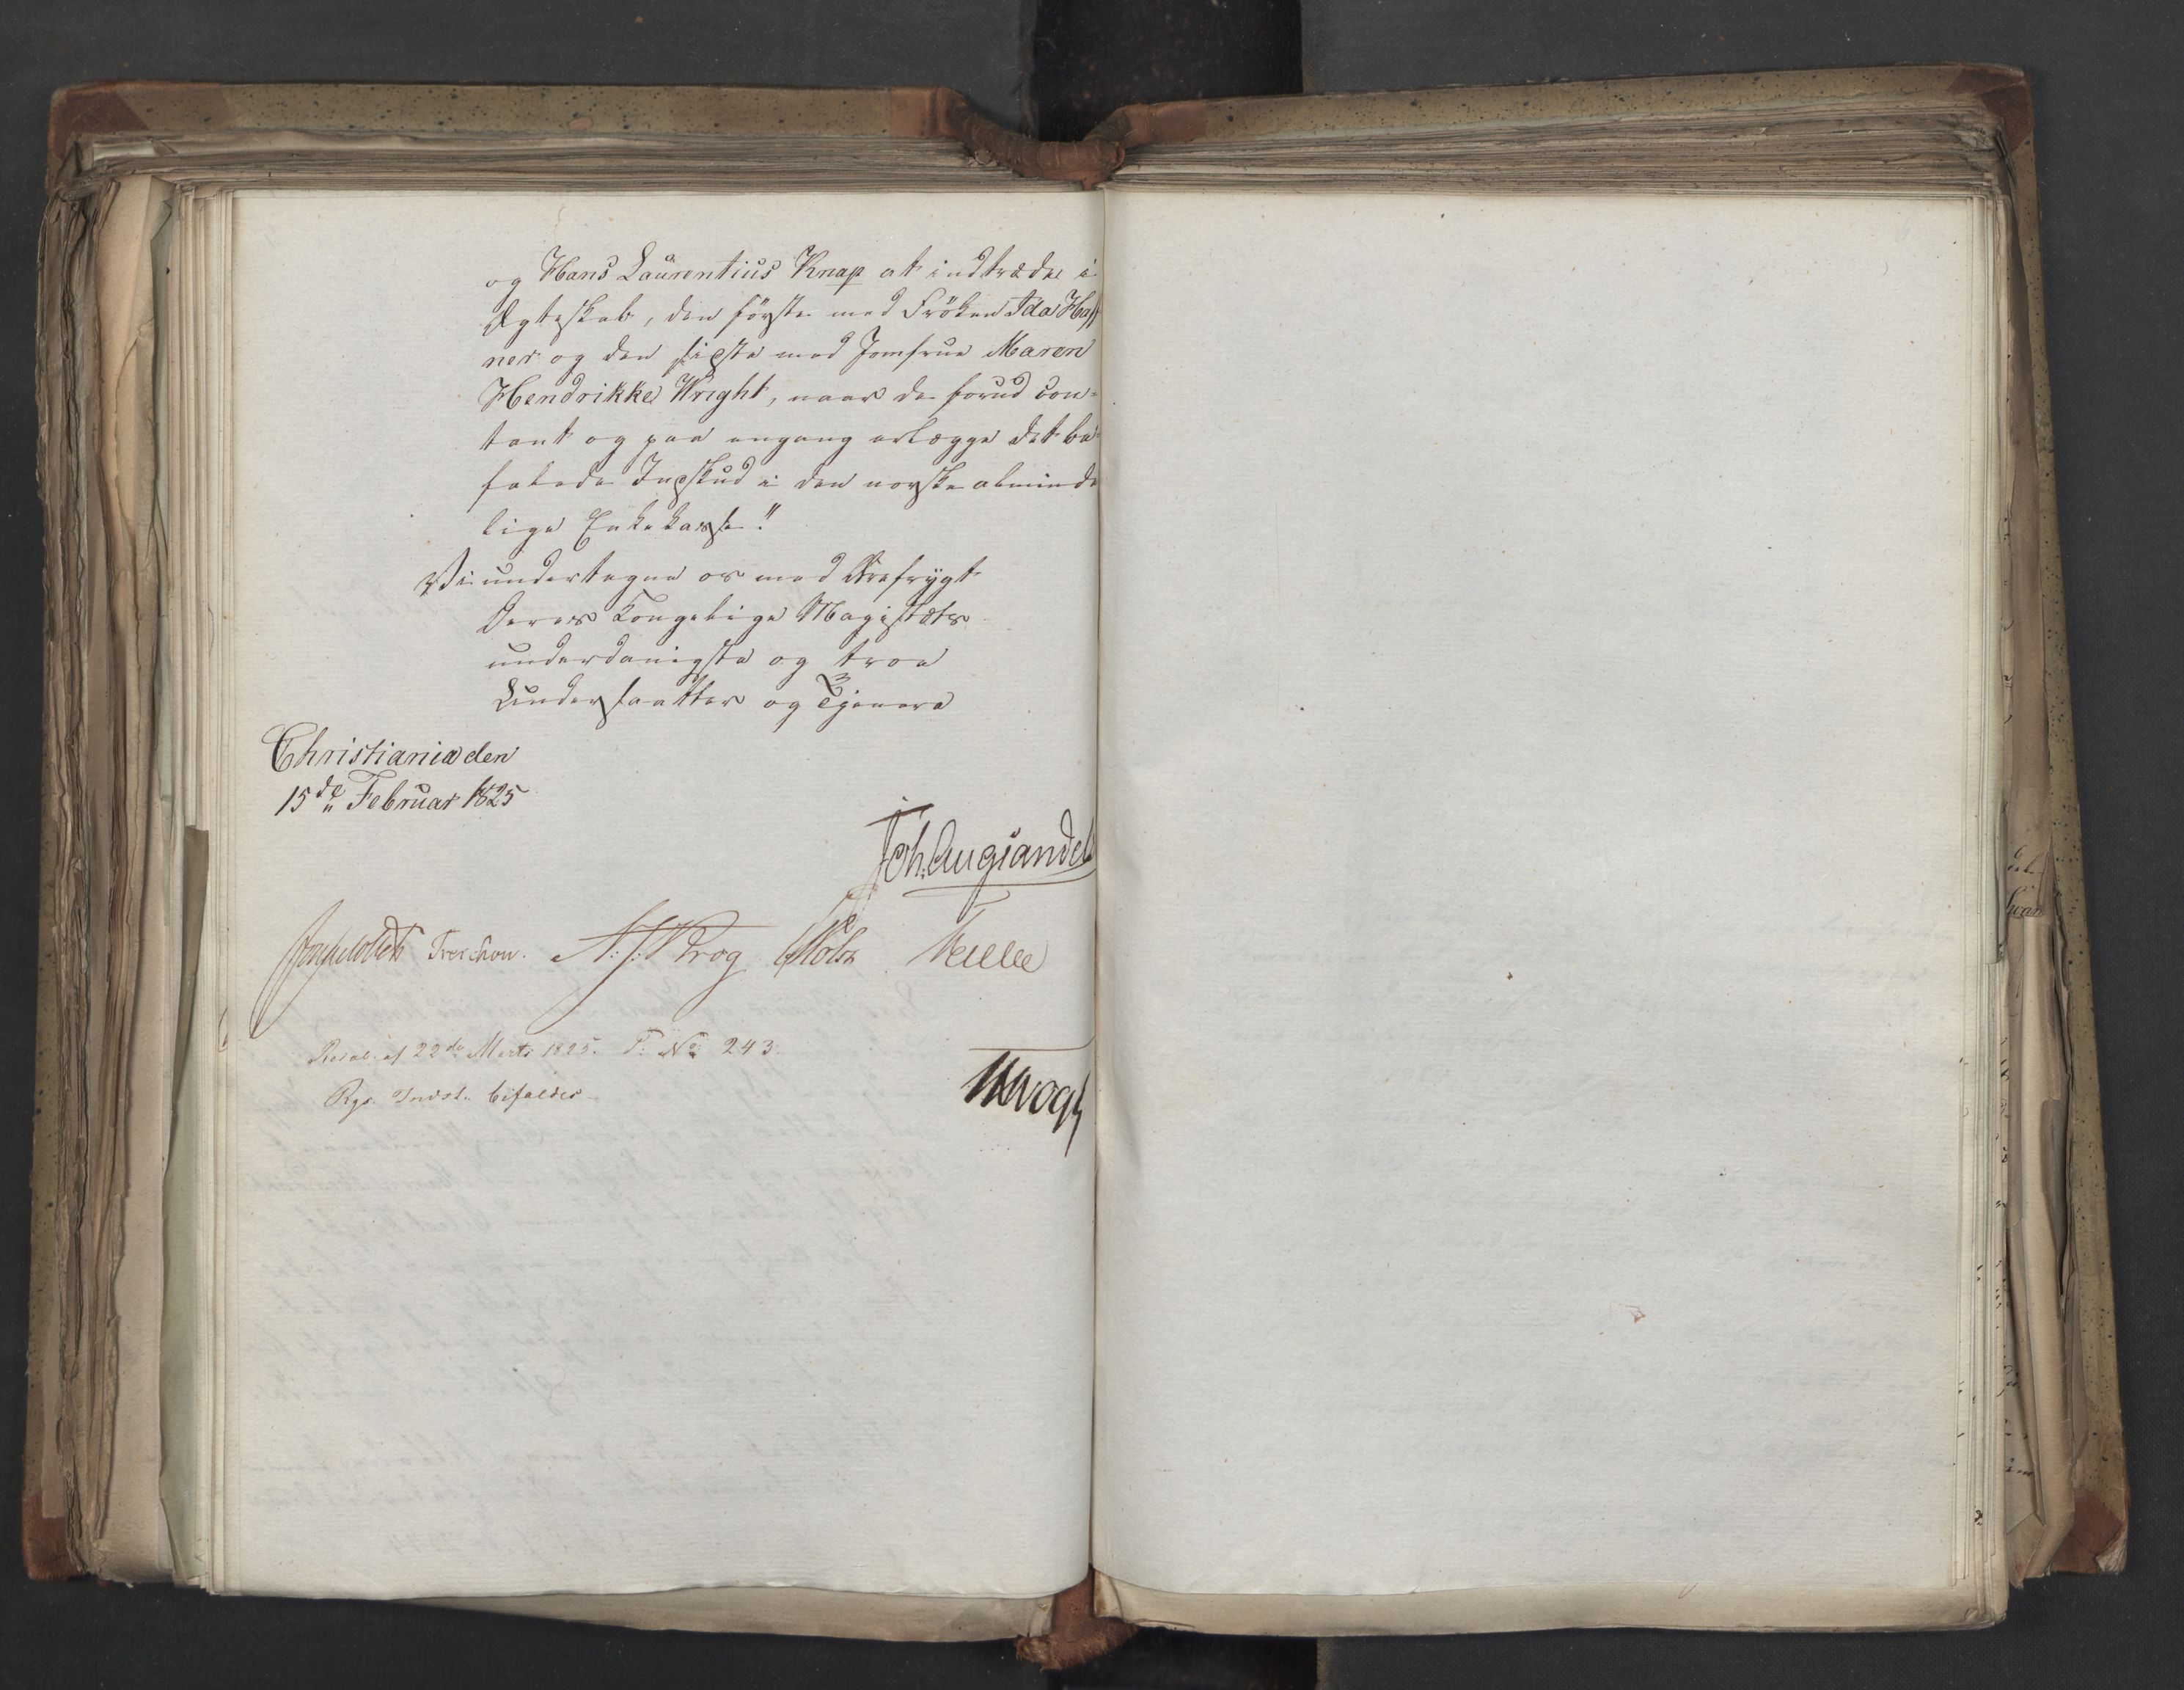 og Hans Laurentius Knap at indtræde i
Ægteskab, den første med Fröken Ida Haff
ner og den sidste med Jomfrue Maren
Hendrikke Wright, naar de forud con-
tant og paa engang erlægge det be-
falede Indskud i den norske alminde
lige Enkekasse!"
Vi undertegne os med Ærefrygt
Deres Kongelige Majestæts
underdanigste og troe
Undersaatter og Tjenere
Christiania den
15de Februar 1825
Joh: Aug: Sandels
Treschow.
Krog
Holst
Resol. af 22de Marts 1825. P. No 243.
Rgs. Indst. bifaldes.